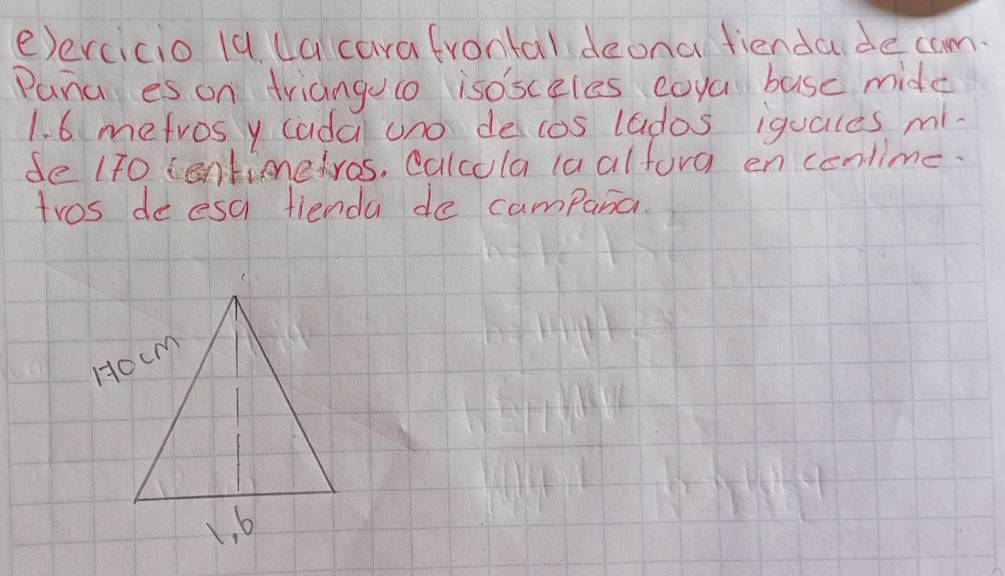 ejercicio 19. La cara frontal de ona tienda de cam-
Paña es on trianguco isósceles coya base mide
1.6 metros y cada uno de los lados iguales mi-
de 170 centimetros. Calcola la altora en centime-
tros de esa tienda de camPaña.
170cm
1,6